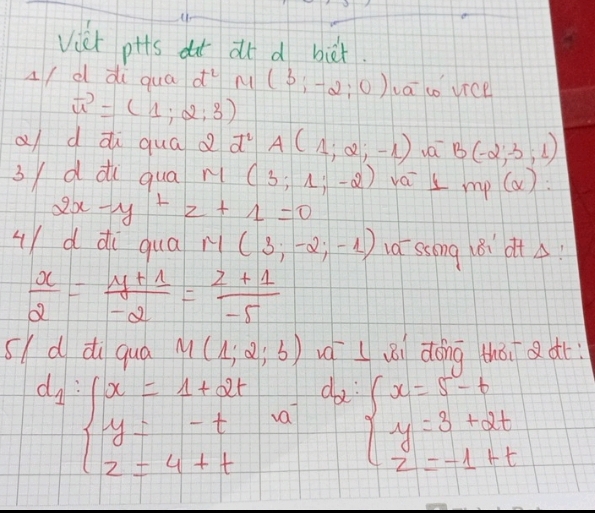 Viết ptts đt d biết.
1/ d đi qua đ' M (3; -2; 0) và có vtcp
u⃗ = (1; 2; 3)
2/ d đi qua 2 đ' A (1; 2; -1) và B (-2; 3; 1)
3/ d đi qua M (3; 1; -2) và ⊥ mp (α):
2x - y + z + 1 = 0
4/ d đi qua M (3; -2; -1) và ssong với đt Δ:
x/2 = y + 1/-2 = z + 1/-5
5/ d đi qua M (1; 2; 3) và ⊥ với đồng thời 2 đt:
d1: { x = 1 + 2t và d2: { x = 5 - t
y = - t y = 3 + 2t
z = 4 + t z = -1 + t